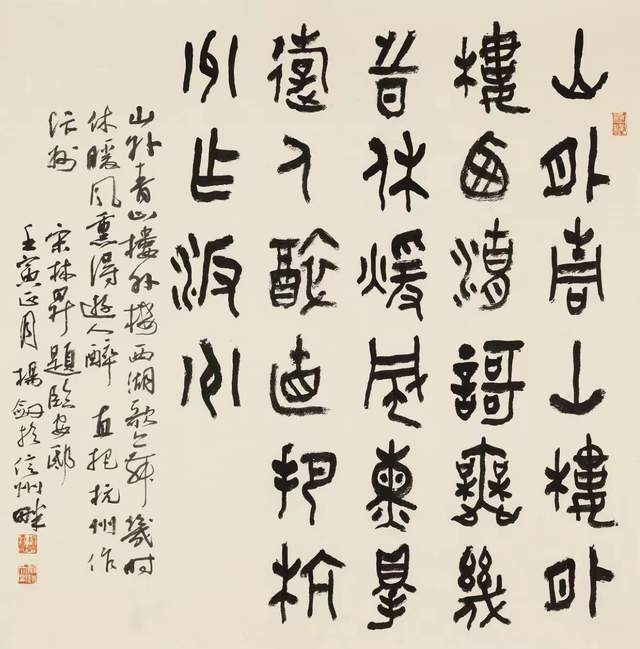 山外青山樓外
樓西湖歌舞幾
時休暖風熏得
遊人醉直把杭
州作汴州
山外青山樓外樓西湖歌舞幾时
休暖風熏得遊人醉 直把杭州作
汴州
宋林昇題臨安邸
壬寅正月楊劍於信州畔